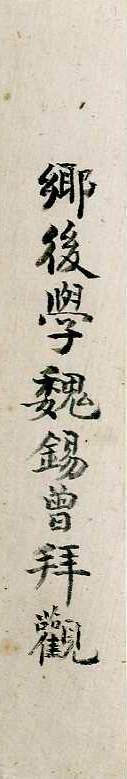 鄉後學魏錫曾拜觀